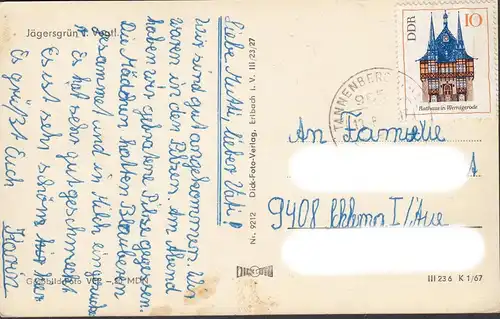 Jägersgrün i. Vogtl.
Liebe Mutti, lieber Vati!
Wir sind gut angekommen. Wir
waren in den Pilzen. Am Abend
haben wir gebratene Pilze gegessen.
Die Mädchen hatten Blaubeeren
gesammelt und in Milch
Es hat sehr gut geschmeckt
Es ist sehr schön hier
Es grüßt Euch
Nr. 9212 Dick-Foto-Verlag, Erlbach i. V. III/23/27
DDR
10
Rathaus in Wernigerode
TANNENBERG
936
An Familie
9408 I/Aue
III 23 6 K 1/67